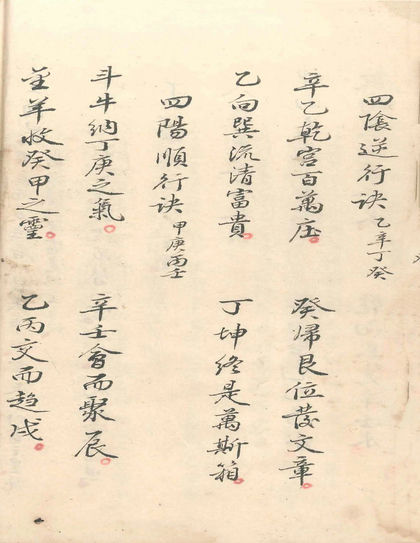 四隂逆行訣 乙辛丁癸
辛乙乾宮百萬庄。 癸歸艮位發文章。
乙向巽流清富貴。 丁坤終是萬斯箱。
四陽順行訣 甲庚丙壬
斗牛納丁庚之氣。 辛壬會而聚辰。
金羊收癸甲之靈。 乙丙交而趨戌。